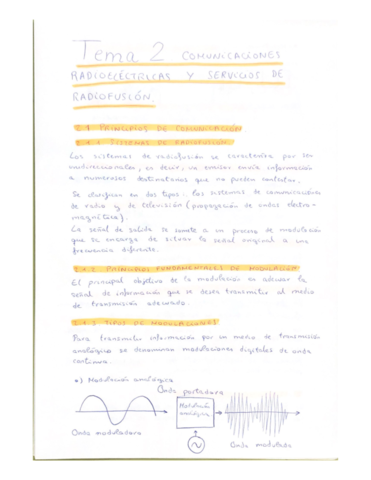 Tema 2 COMUNICACIONES
RADIOELÉCTRICAS Y SERVICIOS DE
RADIOFUSIÓN.
2.1 PRINCIPIOS DE COMUNICACIÓN
2.1.1 SISTEMAS DE RADIOFUSIÓN.
Los sistemas de radiofusión se caracteriza por ser
unidireccionales, es decir, un emisor envía información
a numerosos destinatarios que no pueden contestar.
Se clasifican en dos tipos: los sistemas de comunicación
de radio y de televisión (propagación de ondas electro-
magnética).
La señal de salida se somete a un proceso de modulación
que se encarga de situar la señal original a una
frecuencia diferente.
2.1.2 PRINCIPIOS FUNDAMENTALES DE MODULACIÓN
El principal objetivo de la modulación es adecuar la
señal de información que se desea transmitir al medio
de transmisión adecuado.
2.1.3 TIPOS DE MODULACIONES
Para transmitir información por un medio de transmisión
analógico se denominan modulaciones digitales de onda
continua.
•) Modulación analógica
Onda portadora
Modulación
analógica
Onda moduladora
Onda modulada